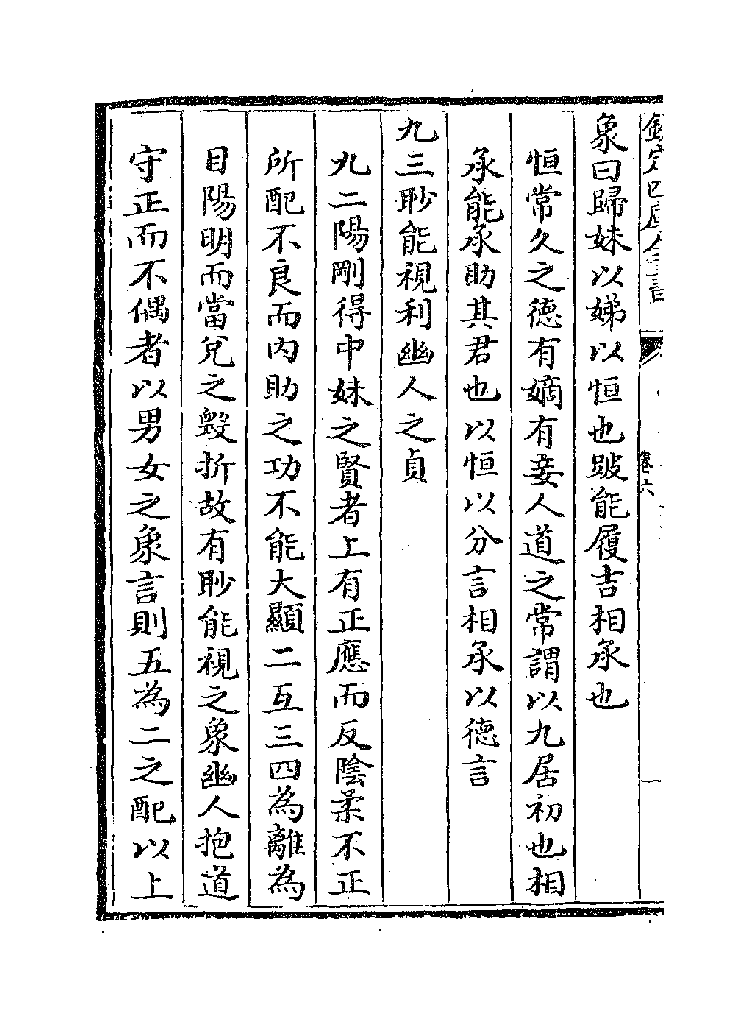 欽定四庫全書
卷六
象曰歸妹以娣以恒也跛能履吉相承也
恒常久之德有嫡有妾人道之常謂以九居初也相
承能承助其君也以恒以分言相承以德言
九三眇能視利幽人之貞
九二陽剛得中妹之賢者上有正應而反陰柔不正
所配不良而内助之功不能大顯二互三四為離為
目陽明而當兌之毀折故有眇能視之象幽人抱道
守正而不偶者以男女之象言則五為二之配以上